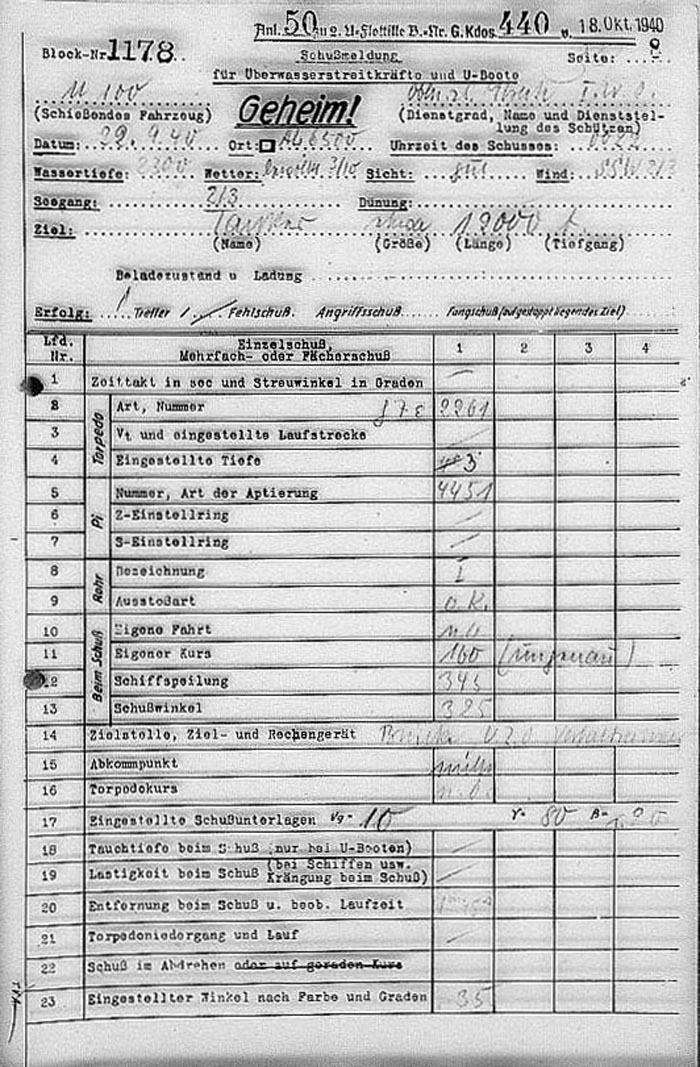 Anl. 50 zu 2. U-Flottille B.-Nr. G.Kdos. 440 v. 18. Okt. 1940
Block-Nr. 1178
Schußmeldung
für Überwasserstreitkräfte und U-Boote
Seite: 8
U 100
Geheim!
I.W.O.
(Schießendes Fahrzeug)
(Dienstgrad, Name und Dienststellung des Schützen)
Datum: 22.9.40 Ort: Uhrzeit des Schusses:
Wassertiefe: 2300 Wetter: 3/10 Sicht: gut Wind: SSW 2/3
Seegang: 2/3 Dünung:
Ziel: Tanker etwa 12000 t.
(Name) (Größe) (Länge) (Tiefgang)
Beladezustand u Ladung
Erfolg: 1 Treffer Fehlschuß. Angriffsschuß Fangschuß (aufgestoppt liegendes Ziel)
Lfd. Nr. Einzelschuß, Mehrfach- oder Fächerschuß 1 2 3 4
1 Zeittakt in sec und Streuwinkel in Graden —
Torpedo
2 Art, Nummer G 7 e 2261
3 Vt und eingestellte Laufstrecke /
4 Eingestellte Tiefe 3
Pi
5 Nummer, Art der Aptierung 4451
6 Z-Einstellring /
7 S-Einstellring /
Rohr
8 Bezeichnung I
9 Ausstoßart o.K.
Beim Schuß
10 Eigene Fahrt
11 Eigener Kurs 160 (ungenau)
12 Schiffspeilung 345
13 Schußwinkel 325
14 Zielstelle, Ziel- und Rechengerät Brücke UZO
15 Abkommpunkt mitte
16 Torpedokurs
17 Eingestellte Schußunterlagen Vg= 10 γ= 80
18 Tauchtiefe beim Schuß (nur bei U-Booten) /
19 Lastigkeit beim Schuß (bei Schiffen usw. Krängung beim Schuß) /
20 Entfernung beim Schuß u. beob. Laufzeit
21 Torpedoniedergang und Lauf /
22 Schuß im Abdrehen oder auf geraden Kurs
23 Eingestellter Winkel nach Farbe und Graden 35